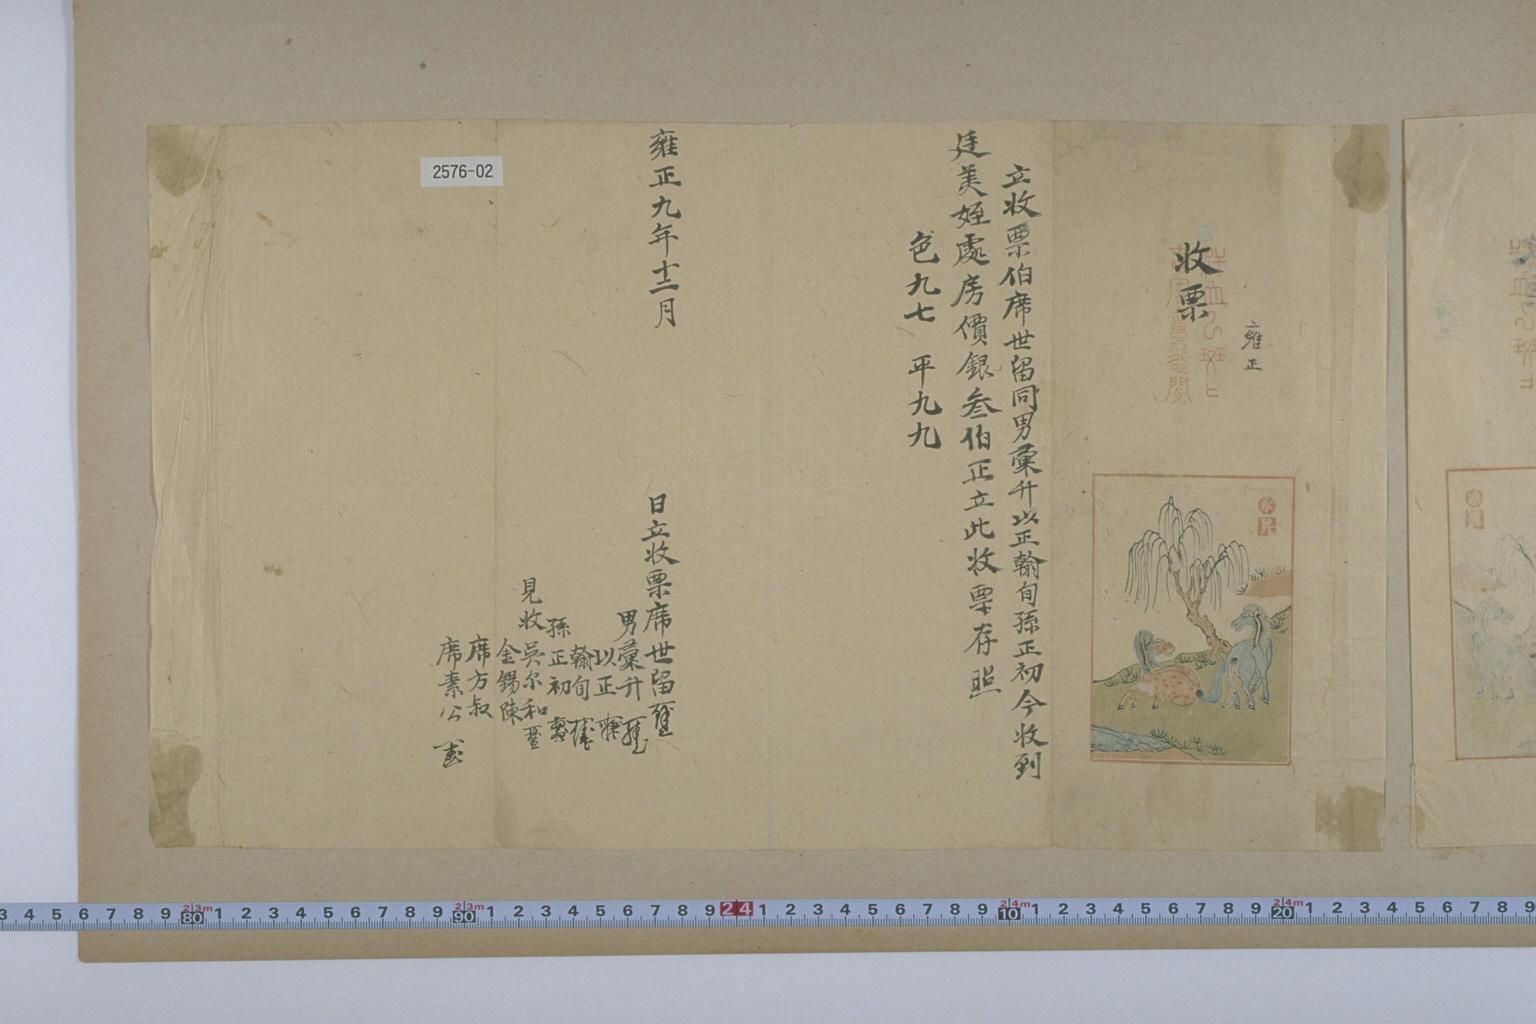 收票
雍正
立收票伯席世留同男彙升以正翰旬孫正初今收到
廷美姪處房價銀叁伯正立此收票存照
色九七 平九九
雍正九年十二月 日立收票席世留
男彙升
以正
翰旬
孫正初
見收吳尔和
金錫陳
席方叔
席素公
2576-02
3 4 5 6 7 8 9 80 1 2 3 4 5 6 7 8 9 90 1 2 3 4 5 6 7 8 9 24 1 2 3 4 5 6 7 8 9 10 1 2 3 4 5 6 7 8 9 20 1 2 3 4 5 6 7 8 9